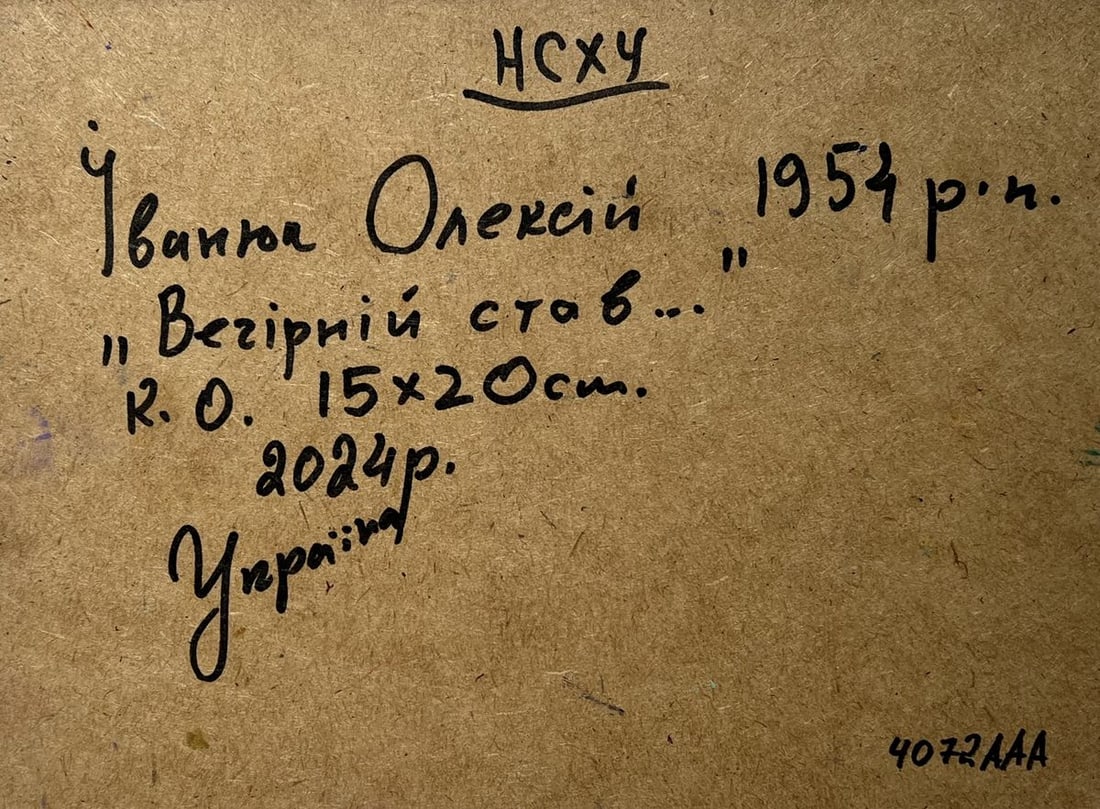 НСХУ
Іванюк Олексій 1954 р.н.
"Вечірній став..."
К.О. 15х20см.
2024р.
Україна
4072ААА